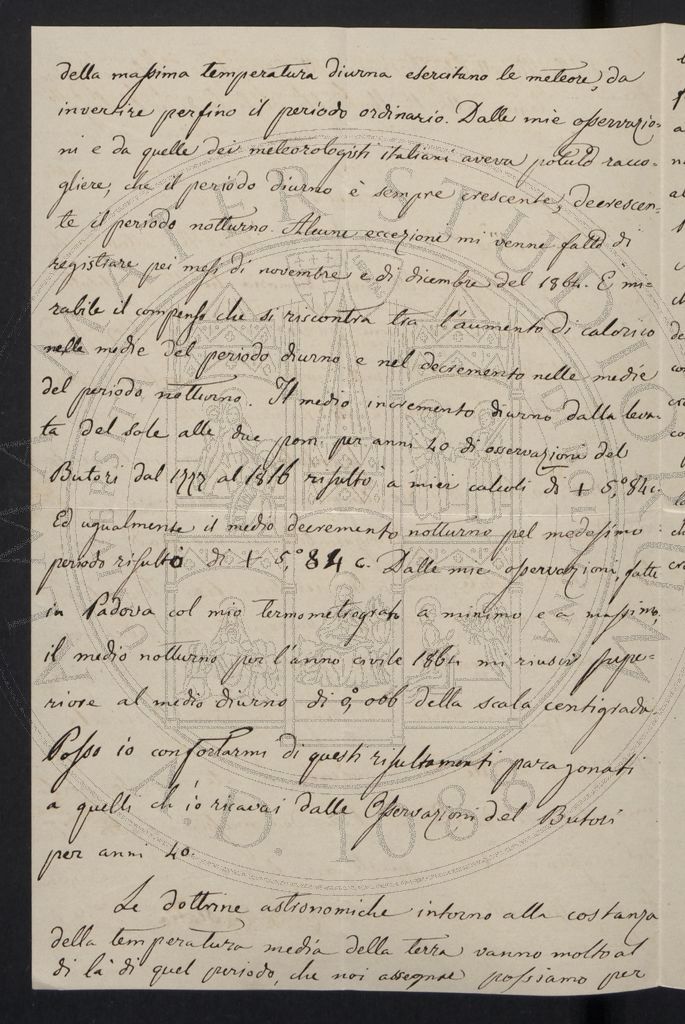 della massima temperatura diurna esercitano le meteore, da
invertire perfino il periodo ordinario. Dalle mie osservazio-
ni e da quelle dei meteorologisti italiani aveva potuto racco-
gliere, che il periodo diurno è sempre crescente, decrescen-
te il periodo notturno. Alcune eccezioni mi venne fatto di
registrare pei mesi di novembre e di dicembre del 1864. È mi-
rabile il compenso che si riscontra tra l'aumento di calorico
nelle medie del periodo diurno e nel decremento nelle medie
del periodo notturno. Il medio incremento diurno dalla leva-
ta del sole alle due pom. per anni 40 di osservazione del
Butori dal 1777 al 1816 risultò a miei calcoli di + 5,°84 c.
Ed ugualmente il medio decremento notturno pel medesimo
periodo risultò di + 5,°84 c. Dalle mie osservazioni fatte
in Padova col mio termometrografo a minimo e a massimo,
il medio notturno per l'anno civile 1864 mi riuscì supe-
riore al medio diurno di 0,°066 della scala centigrada.
Posso io confortarmi di questi risultamenti paragonati
a quelli ch'io ricavai dalle Osservazioni del Butori
per anni 40.
Le dottrine astronomiche intorno alla costanza
della temperatura media della terra vanno molto al
di là di quel periodo, che noi assegnar possiamo per
ALMA MATER STUDIORUM
A.D. 1088